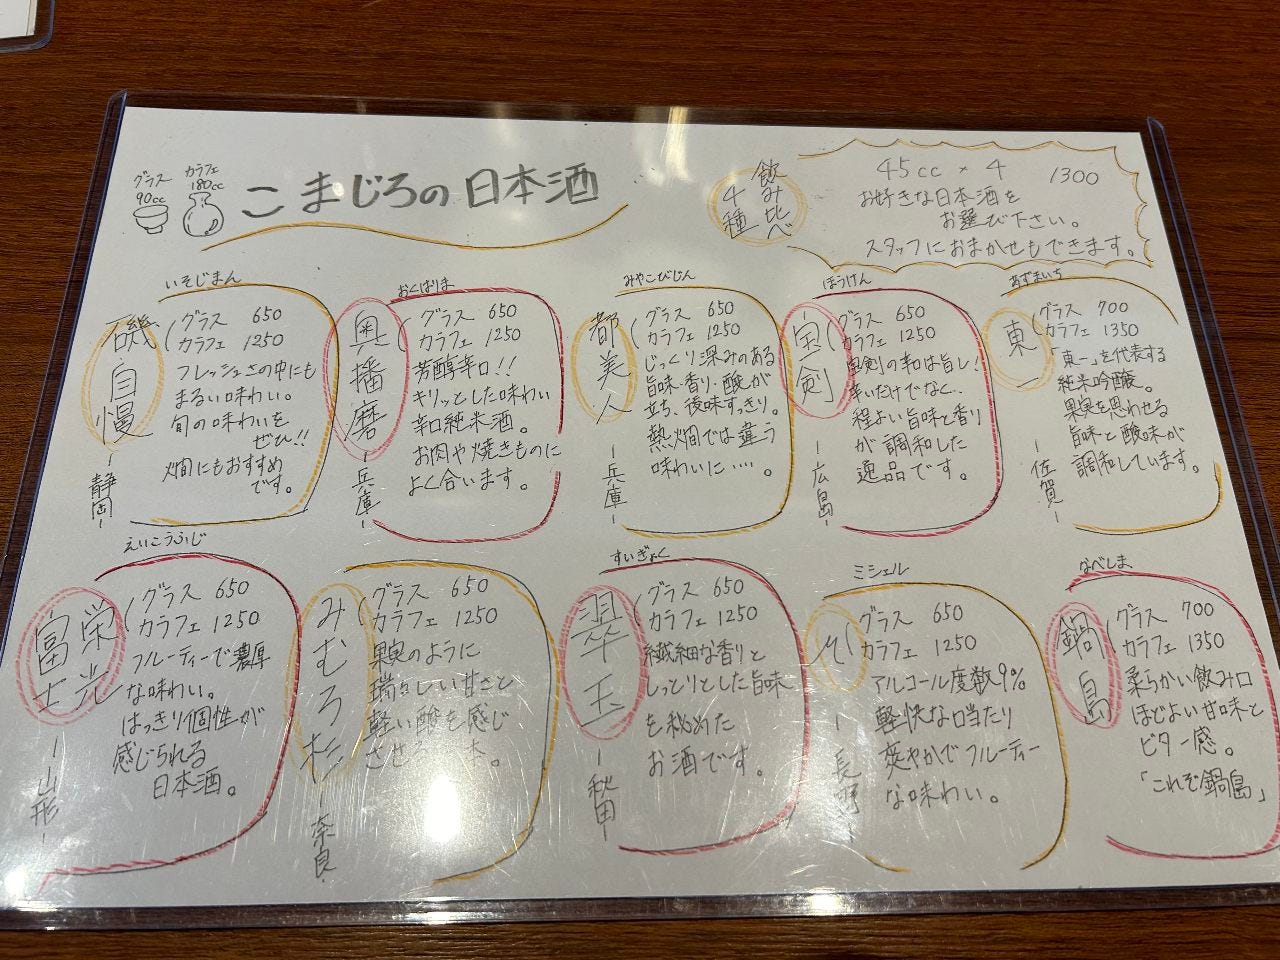 グラス
90cc
カラフェ
180cc
こまじろの日本酒
飲み比べ
4種
45cc × 4 1300
お好きな日本酒を
お選び下さい。
スタッフにおまかせもできます。
いそじまん
磯自慢
-静岡-
グラス 650
カラフェ 1250
フレッシュさの中にも
まるい味わい。
旬の味わいを
ぜひ!!
燗にもおすすめ
です。
おくはりま
奥播磨
-兵庫-
グラス 650
カラフェ 1250
芳醇辛口!!
キリッとした味わい
辛口純米酒。
お肉や焼きものに
よく合います。
みやこびじん
都美人
-兵庫-
グラス 650
カラフェ 1250
じっくり深みのある
旨味・香り・酸が
立ち、後味すっきり。
熱燗では違う
味わいに‥‥。
ほうけん
宝剣
-広島-
グラス 650
カラフェ 1250
宝剣の辛口は旨し!
辛いだけでなく、
程よい旨味と香り
が調和した
逸品です。
あずまいち
東一
-佐賀-
グラス 700
カラフェ 1350
「東一」を代表する
純米吟醸。
果実を思わせる
旨味と酸味が
調和しています。
えいこうふじ
栄光
冨士
-山形-
グラス 650
カラフェ 1250
フルーティーで濃厚
な味わい。
はっきり個性が
感じられる
日本酒。
みむろ杉
-奈良-
グラス 650
カラフェ 1250
果実のように
瑞々しい甘さと
軽い酸を感じ
させる
すいぎょく
翠玉
-秋田-
グラス 650
カラフェ 1250
繊細な香りと
しっとりとした旨味
を秘めた
お酒です。
ミシェル
-長野-
グラス 650
カラフェ 1250
アルコール度数9%
軽快な口当たり
爽やかでフルーティー
な味わい。
なべしま
鍋島
グラス 700
カラフェ 1350
柔らかい飲み口
ほどよい甘味と
ビター感。
「これぞ鍋島」